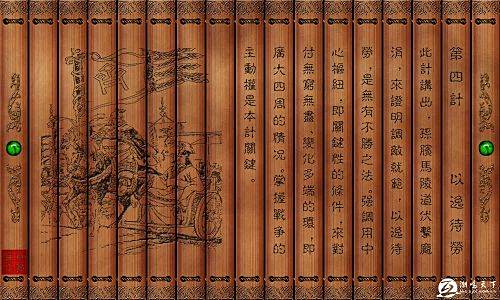 第四計 以逸待勞
此計講出，孫臏馬陵道伏擊龐
涓，來證明調敵就範，以逸待
勞，是無有不勝之法。強調用中
心樞紐，即關鍵性的條件，來對
付無窮無盡、變化多端的環，即
廣大四周的情况。掌握戰爭的
主動權是本計關鍵。